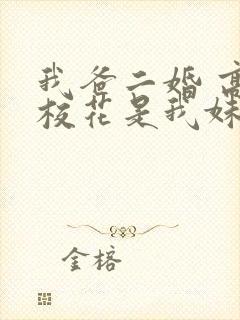 我爸二婚 高
校花是我妹
金榕